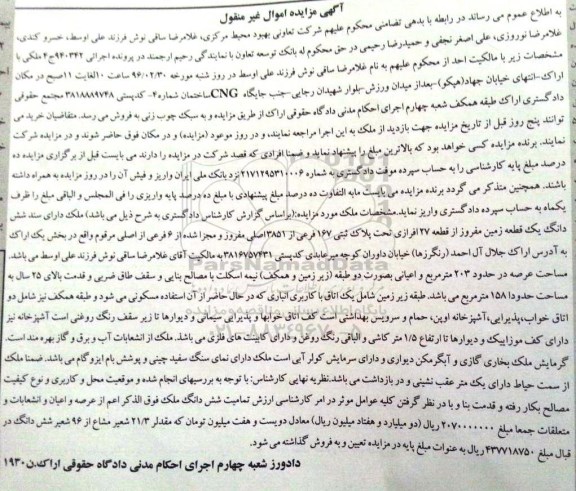 آگهی مزایده اموال غیر منقول
به اطلاع عموم می رساند در رابطه با بدهی تضامنی محکوم علیهم شرکت تعاونی بهبود محیط مرکزی، غلامرضا ساقی نوش فرزند علی اوسط، خسرو کندی،
غلامرضا نوروزی، علی اصغر نجفی و حمیدرضا رحیمی در حق محکوم له بانک توسعه تعاون با نمایندگی رحیم ارجمند در پرونده اجرائی ۹۴۰۳۴۲ج۴ ملکی با
مشخصات زیر با مالکیت احد از محکوم علیهم به نام غلامرضا ساقی نوش فرزند علی اوسط در روز شنبه مورخه ۹۶/۰۲/۳۰ ساعت ۱۰الغایت ۱۱صبح در مکان
اراک-انتهای خیابان جهاد(هپکو)-بعداز میدان ورزش-بلوار شهیدان رجایی-جنب جایگاه CNGساختمان شماره۴- کدپستی ۳۸۱۸۸۸۹۷۴۸ مجتمع حقوقی
دادگستری اراک طبقه همکف شعبه چهارم اجرای احکام مدنی دادگاه حقوقی اراک از طریق مزایده و به سبک چوب زنی به فروش می رسد. متقاضیان خرید می
توانند پنج روز قبل از تاریخ مزایده جهت بازدید از ملک به این اجرا مراجعه نمایند، و در روز موعود (مزایده) و در مکان فوق حاضر شوند و در مزایده شرکت
نمایند. برنده مزایده کسی خواهد بود که بالاترین مبلغ را پیشنهاد نماید و ضمنا افرادی که قصد شرکت در مزایده را دارند می بایست قبل از برگزاری مزایده ده
درصد مبلغ پایه کارشناسی را به حساب سپرده موقت دادگستری به شماره ۲۱۷۱۲۹۵۳۱۰۰۰۶ نزد بانک ملی ایران واریز و فیش آن را در روز مزایده به همراه داشته
باشند. همچنین متذکر می گردد برنده مزایده می بایست مابه التفاوت ده درصد مبلغ پیشنهادی با مبلغ ده درصد پایه واریزی را فی المجلس و الباقی مبلغ را ظرف
یکماه به حساب سپرده دادگستری واریز نماید.مشخصات ملک مورد مزایده:(براساس گزارش کارشناس دادگستری به شرح ذیل می باشد) ملک دارای سند شش
دانگ یک قطعه زمین مفروز از قطعه ۲۷ افرازی تحت پلاک ثبتی ۱۶۷ فرعی از ۳۸۵۱اصلی مفروز و مجزا شده از ۶ فرعی از اصلی مرقوم واقع در بخش یک اراک
به آدرس اراک جلال آل احمد (رنگرزها) خیابان داوران کوچه میرعابدی کدپستی ۳۸۱۶۷۵۷۴۳۱ به مالکیت آقای غلامرضا ساقی نوش فرزند علی اوسط می باشد.
مساحت عرصه در حدود ۲۰۳ مترمربع و اعیانی بصورت دو طبقه (زیر زمین و همکف) نیمه اسکلت با مصالح بنایی و سقف طاق ضربی و قدمت بالای ۲۵ سال به
مساحت حدودا ۱۵۸ مترمربع می باشد. طبقه زیر زمین شامل یک اتاق با کاربری انباری که در حال حاضر از آن استفاده مسکونی می شود و طبقه همکف نیز شامل دو
اتاق خواب،پذیرایی،آشپزخانه اوپن، حمام و سرویس بهداشتی است کف اتاق خوابها و پذیرایی سیمانی و دیوارها تا زیر سقف رنگ روغنی است آشپزخانه نیز
دارای کف موزاییک و دیوارها تا ارتفاع ۱/۵ متر کاشی و الباقی رنگ روغن و دارای کابینت های فلزی می باشد. ملک از انشعابات آب و برق و گاز بهره مند است.
گرمایش ملک بخاری گازی و آبگرمکن دیواری و دارای سرمایش کولر آبی است ملک دارای نمای سنگ سفید چینی و پوشش بام ایزوگام می باشد. ضمنا ملک
از سمت حیاط دارای یک متر عقب نشینی و در بازداشت می باشد.نظریه نهایی کارشناس: با توجه به بررسیهای انجام شده و موقعیت محل و کاربری و نوع کیفیت
مصالح بکار رفته و قدمت بنا و با در نظر گرفتن کلیه عوامل موثر در امر کارشناسی ارزش تمامیت شش دانگ ملک فوق الذکر اعم از عرصه و اعیان و انشعابات و
متعلقات جمعا مبلغ ۲۰۷۰۰۰۰۰۰۰ ریال (دو میلیارد و هفتاد میلیون ریال) معادل دویست و هفت میلیون تومان که مقدار ۲۱/۳ شعیر مشاع از ۹۶ شعیر شش دانگ در
قبال مبلغ ۴۳۷۷۱۸۷۵۰ ریال به عنوات مبلغ پایه در مزایده تعیین و به فروش گذاشته می شود.
دادورز شعبه چهارم اجرای احکام مدنی دادگاه حقوقی اراک.ن۱۹۳۰